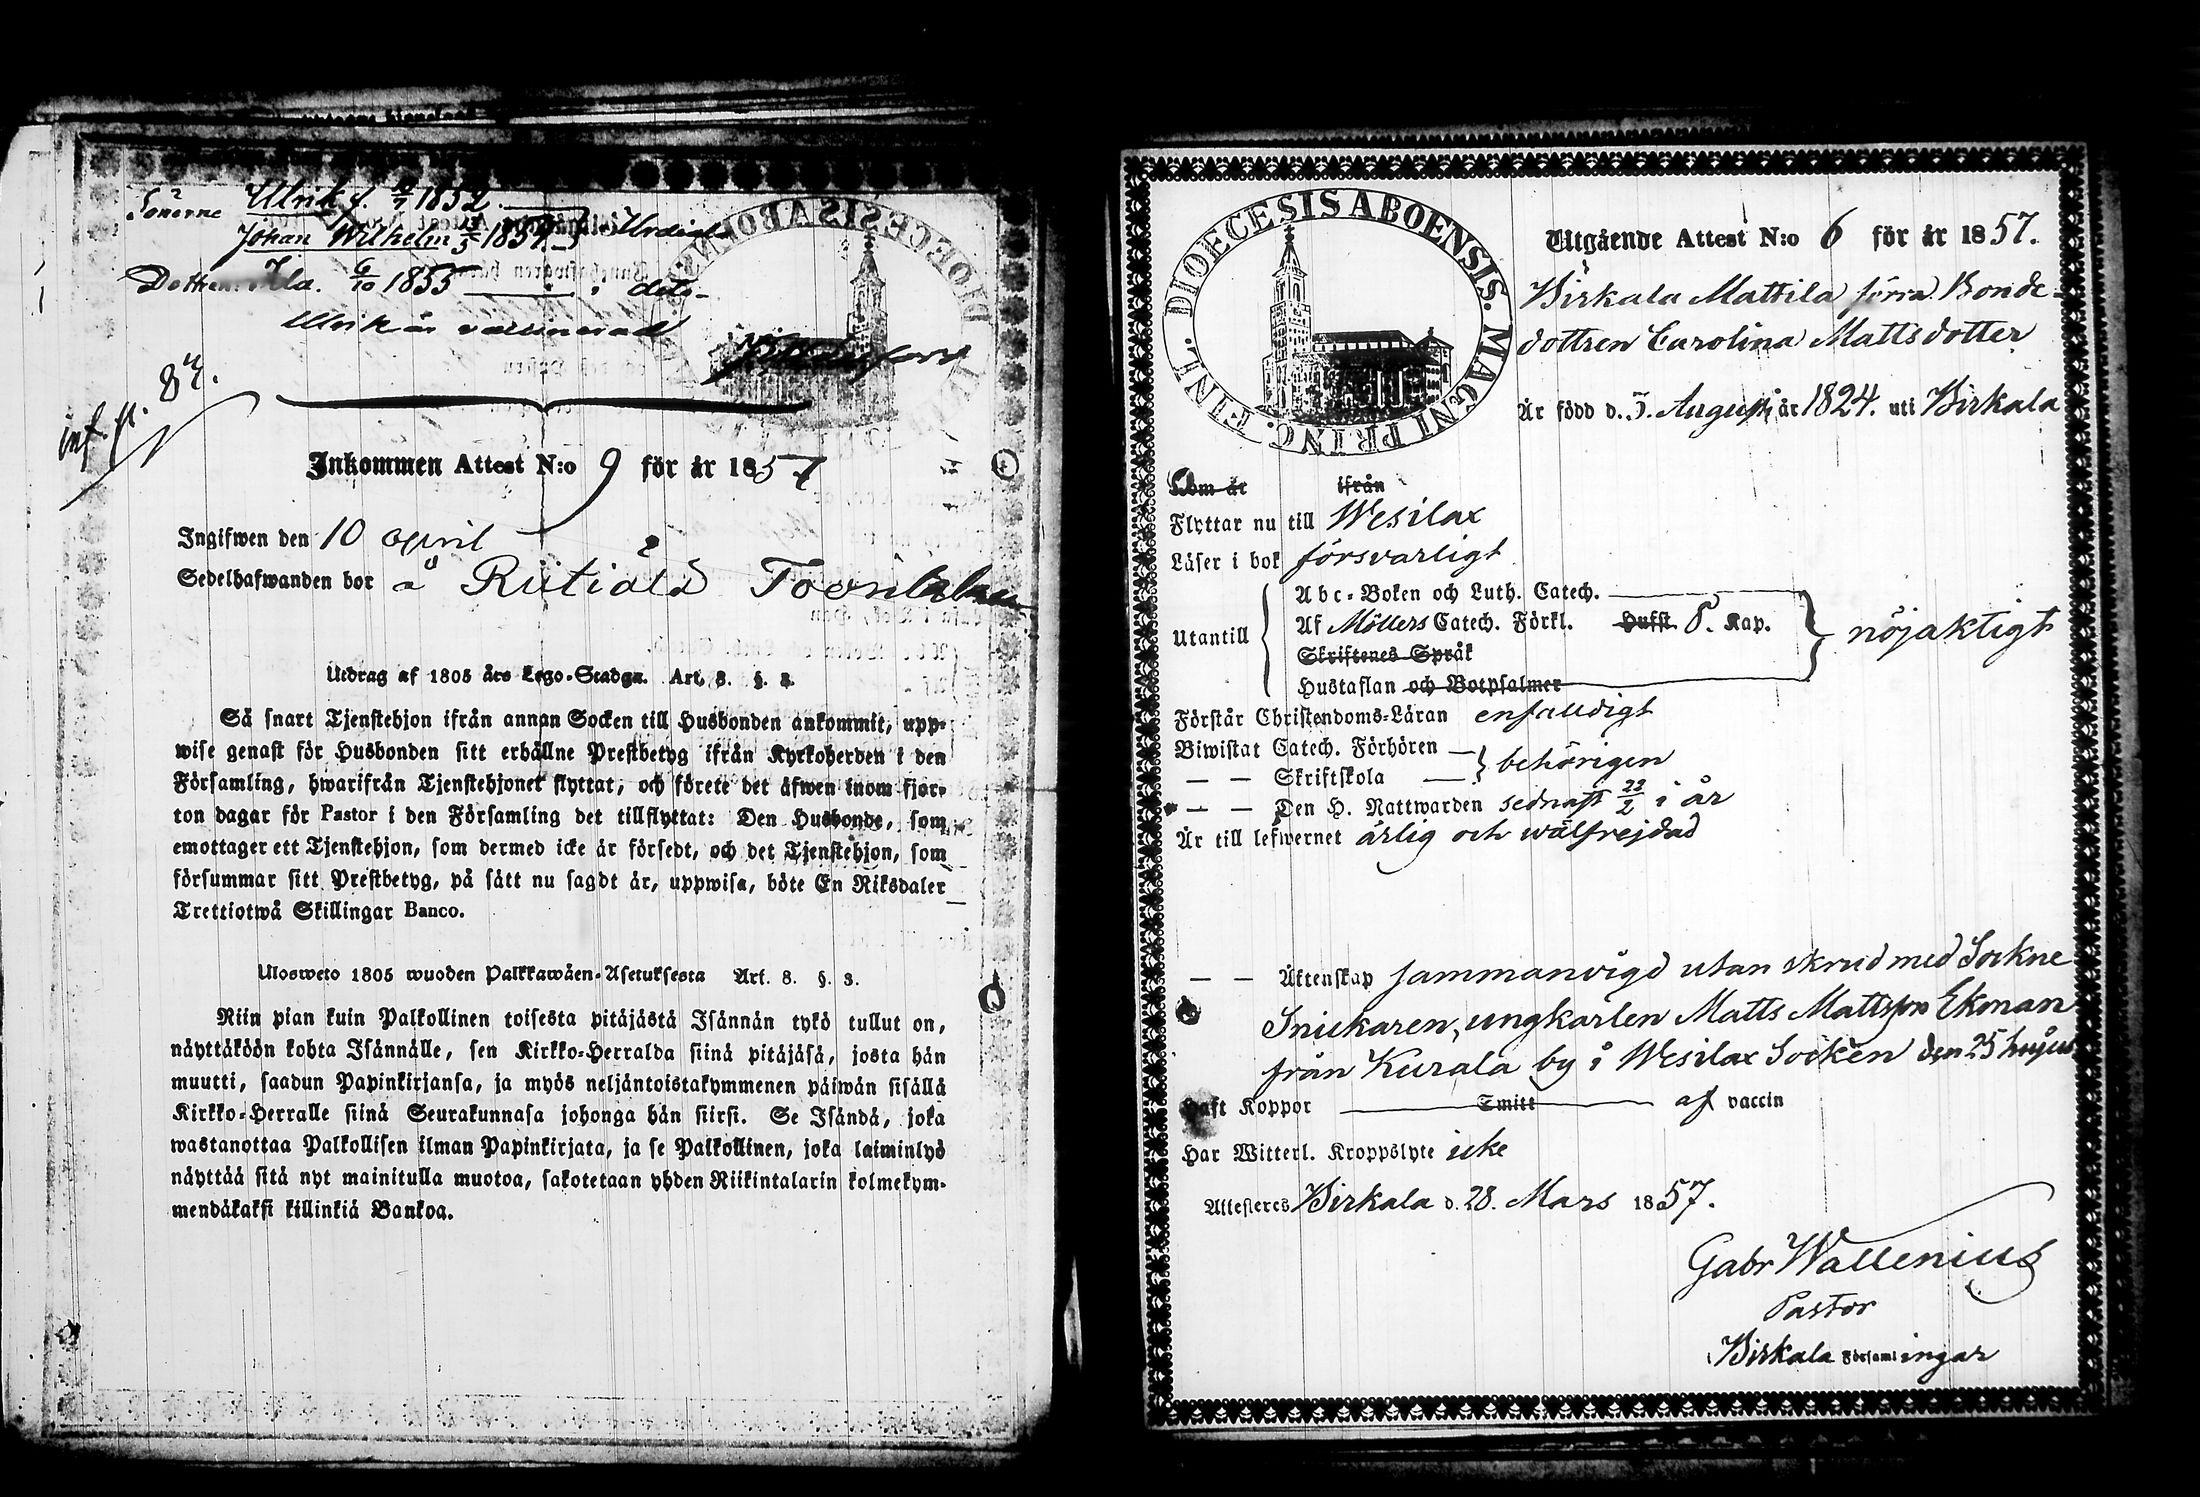 Sönerne Ulrik f. 1852
Johan Wilhelm 1857 i Urdiala
Dottren Ida. 6/10 1855 i dito
Ulrik är vaccinerad
inf. p. 87.
Inkommen Attest N:o 9 för år 1857
Ingifwen den 10 april
Sedelhafwanden bor å Rutiala
Utdrag af 1805 års Lego-Stadga. Art. 8. §. 3.
Så snart Tjenstehjon ifrån annan Socken till Husbonden ankommit, upp-
wise genast för Husbonden sitt erhållne Prestbetyg ifrån Kyrkoherden i den
Församling, hwarifrån Tjenstehjonet flyttat, och förete det äfwen inom fjor-
ton dagar för Pastor i den Församling det tillflyttat: Den Husbonde, som
emottager ett Tjenstehjon, som dermed icke är försedt, och det Tjenstehjon, som
försummar sitt Prestbetyg, på sätt nu sagdt är, uppwisa, böte En Riksdaler
Trettiotwå Skillingar Banco.
Ulosweto 1805 wuoden Palkkawäen-Asetuksesta Art. 8. §. 3.
Niin pian kuin Palkollinen toisesta pitäjästä Isännän tykö tullut on,
näyttäköön kohta Isännälle, sen Kirkko-Herralda siinä pitäjäsä, josta hän
muutti, saadun Papinkirjansa, ja myös neljäntoistakymmenen päiwän sisällä
Kirkko-Herralle siinä Seurakunnasa johonga hän siirsi. Se Isändä, joka
wastanottaa Palkollisen ilman Papinkirjata, ja se Palkollinen, joka laiminlyö
näyttää sitä nyt mainitulla muotoa, sakotetaan yhden Riikintalarin kolmekym-
mendäkaksi killinkiä Bankoa.
DIOECESIS ABOENSIS. MAGNI PRINC. FINL.
Utgående Attest N:o 6 för år 1857.
Birkala Mattila förra Bonde-
dottren Carolina Mattsdotter
Är född d. 5. Augusti år 1824. uti Birkala
Kom år ifrån
Flyttar nu till Wesilax
Läser i bok försvarligt
Utantill
Abc-Boken och Luth. Catech.
Af Möllers Catech. Förkl. Husst. 8. Kap. nöjaktigt
Skriftenes Språk
Hustaflan och Botpsalmer
Förstår Christendoms-Läran enfaldigt
Biwistat Catech. Förhören
— — Skriftskola behörigen
— — Den H. Nattwarden sednast 22/2 i år
Är till lefwernet ärlig och wälfrejdad
— — Äktenskap sammanvigd utan skrud med Sockne
Snickaren, ungkarlen Matts Mattsson Ekman
från Kurala by i Wesilax Socken den 25 hujus
Haft Koppor Smitt af vaccin
Har Witterl. Kroppslyte icke
Attesteres Birkala d. 28. Mars 1857.
Gabr Wallenius
Pastor
i Birkala Församlingar